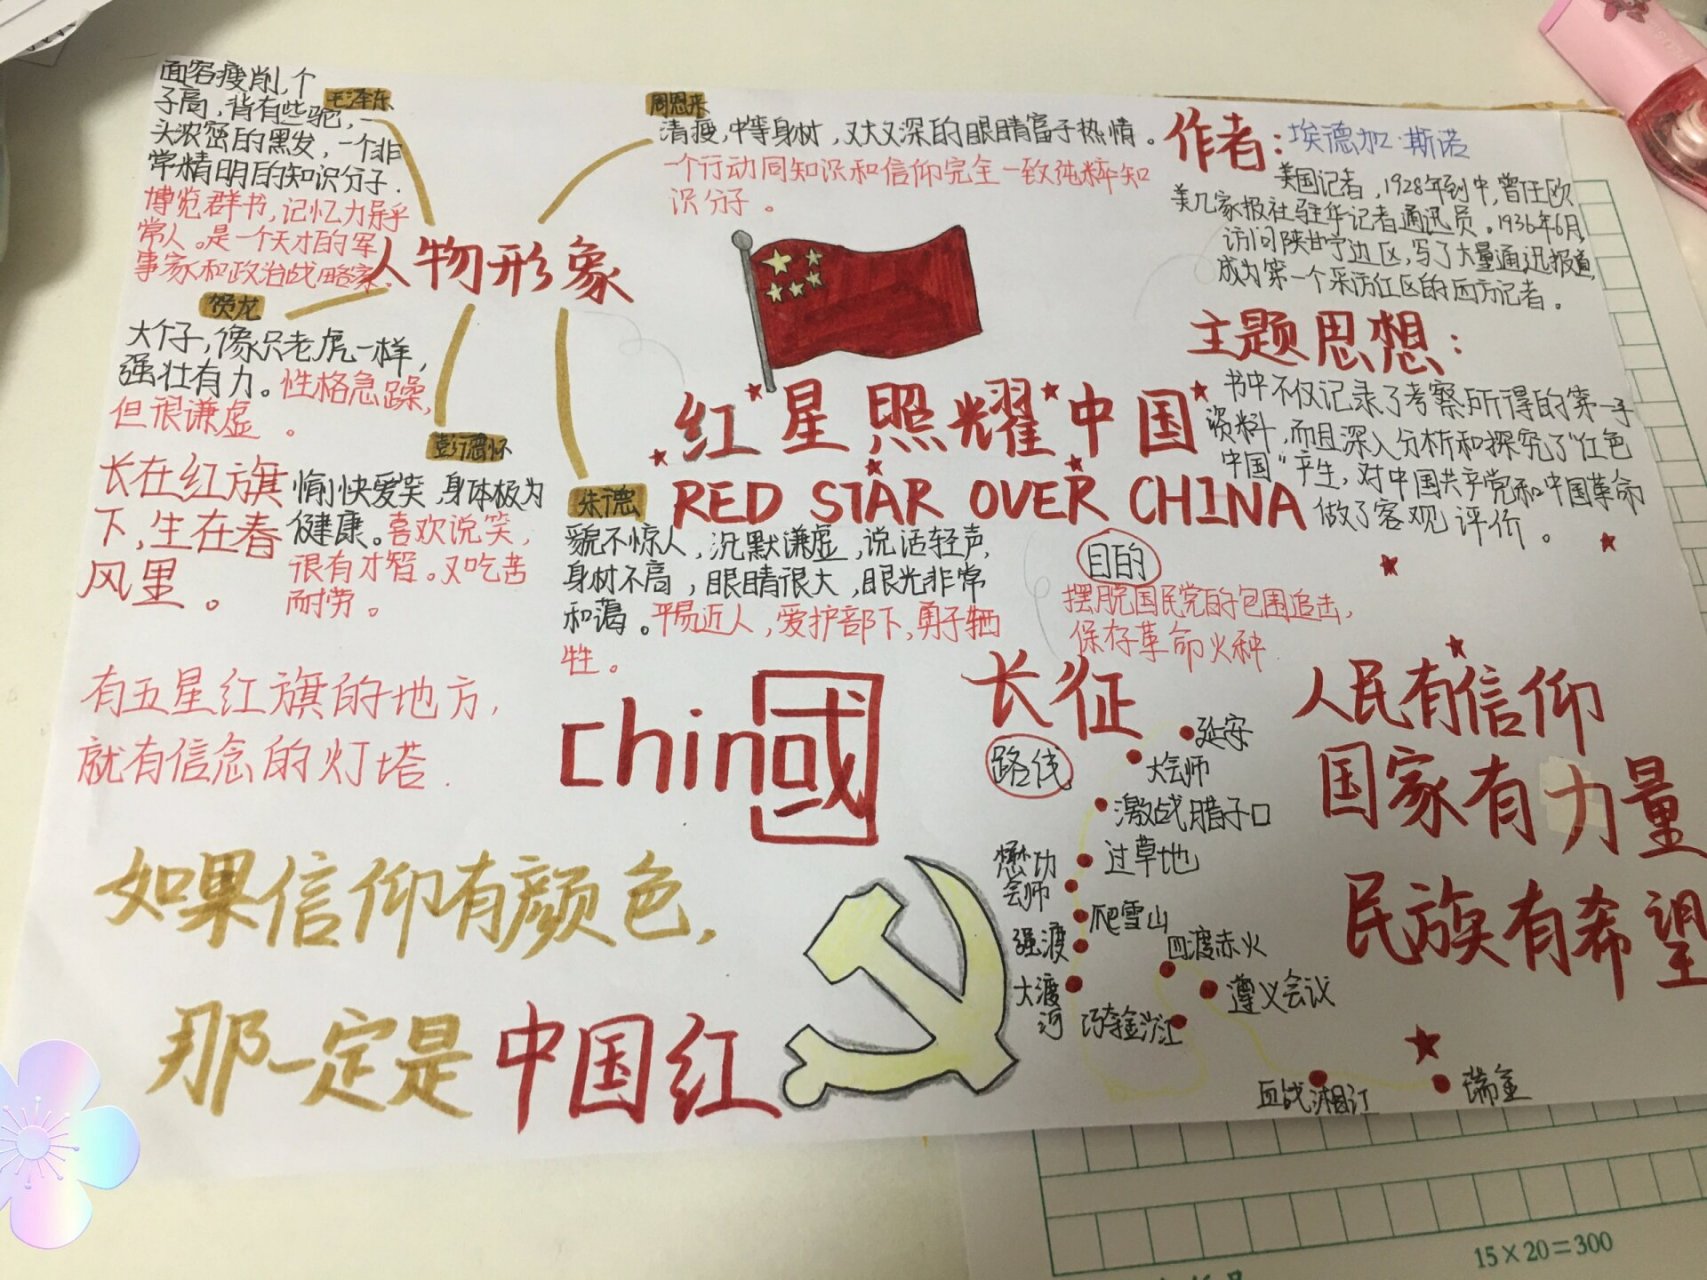 毛泽东
面容瘦削,个
子高,背有些驼,一
头浓密的黑发,一个非
常精明的知识分子.
博览群书,记忆力异乎
常人。是一个天才的军
事家和政治战略家.
周恩来
清瘦,中等身材,又大又深的眼睛富于热情。
一个行动同知识和信仰完全一致纯粹知
识分子。
人物形象
贺龙
大个子,像只老虎一样,
强壮有力。性格急躁,
但很谦虚。
彭德怀
愉快爱笑,身体极为
健康。喜欢说笑,
很有才智。又吃苦
耐劳。
朱德
貌不惊人,沉默谦虚,说话轻声,
身材不高,眼睛很大,眼光非常
和蔼。平易近人,爱护部下,勇于牺
牲。
长在红旗
下,生在春
风里。
红星照耀中国
RED STAR OVER CHINA
作者:埃德加·斯诺
美国记者,1928年到中,曾任欧
美几家报社驻华记者通讯员。1936年6月,
访问陕甘宁边区,写了大量通讯报道,
成为第一个采访红区的西方记者。
主题思想:
书中不仅记录了考察所得的第一手
资料,而且深入分析和探究了"红色
中国"产生,对中国共产党和中国革命
做了客观评价。
目的
摆脱国民党的包围追击,
保存革命火种
长征
路线
延安
大会师
激战腊子口
过草地
懋功
会师
爬雪山
强渡
大渡
河
四渡赤火
遵义会议
巧夺金沙江
血战湘江
瑞金
有五星红旗的地方,
就有信念的灯塔.
chin國
如果信仰有颜色,
那一定是中国红
人民有信仰
国家有力量
民族有希望
15×20=300